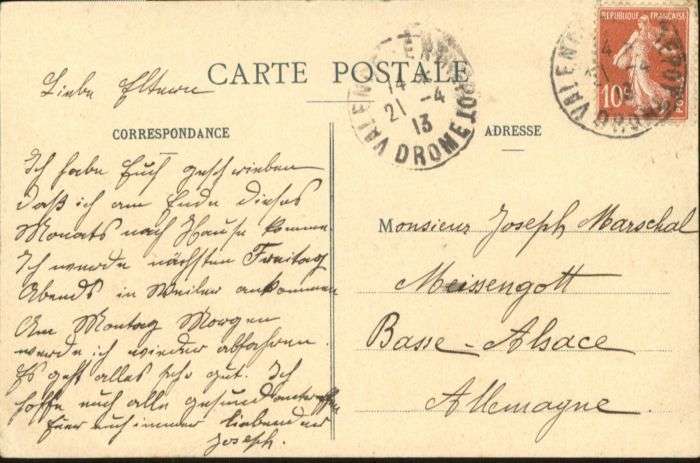 CARTE POSTALE
REPUBLIQUE FRANÇAISE
10
POSTES
VALENCE
DROME
14
21 -4
13
DEPOT
DROME
Liebe Eltern
CORRESPONDANCE
ADRESSE
Ich habe Euch geschrieben
daß ich am Ende dieses
Monats nach Hause komme.
Ich werde nächsten Freitag
Abends in Weiler ankommen
Am Montag Morgen
werde ich wieder abfahren.
Es geht alles sehr gut. Ich
hoffe euch alle gesund antreffen
Euer euch immer liebender
Joseph.
Monsieur Joseph Marschal
Meissengott
Basse-Alsace
Allemagne